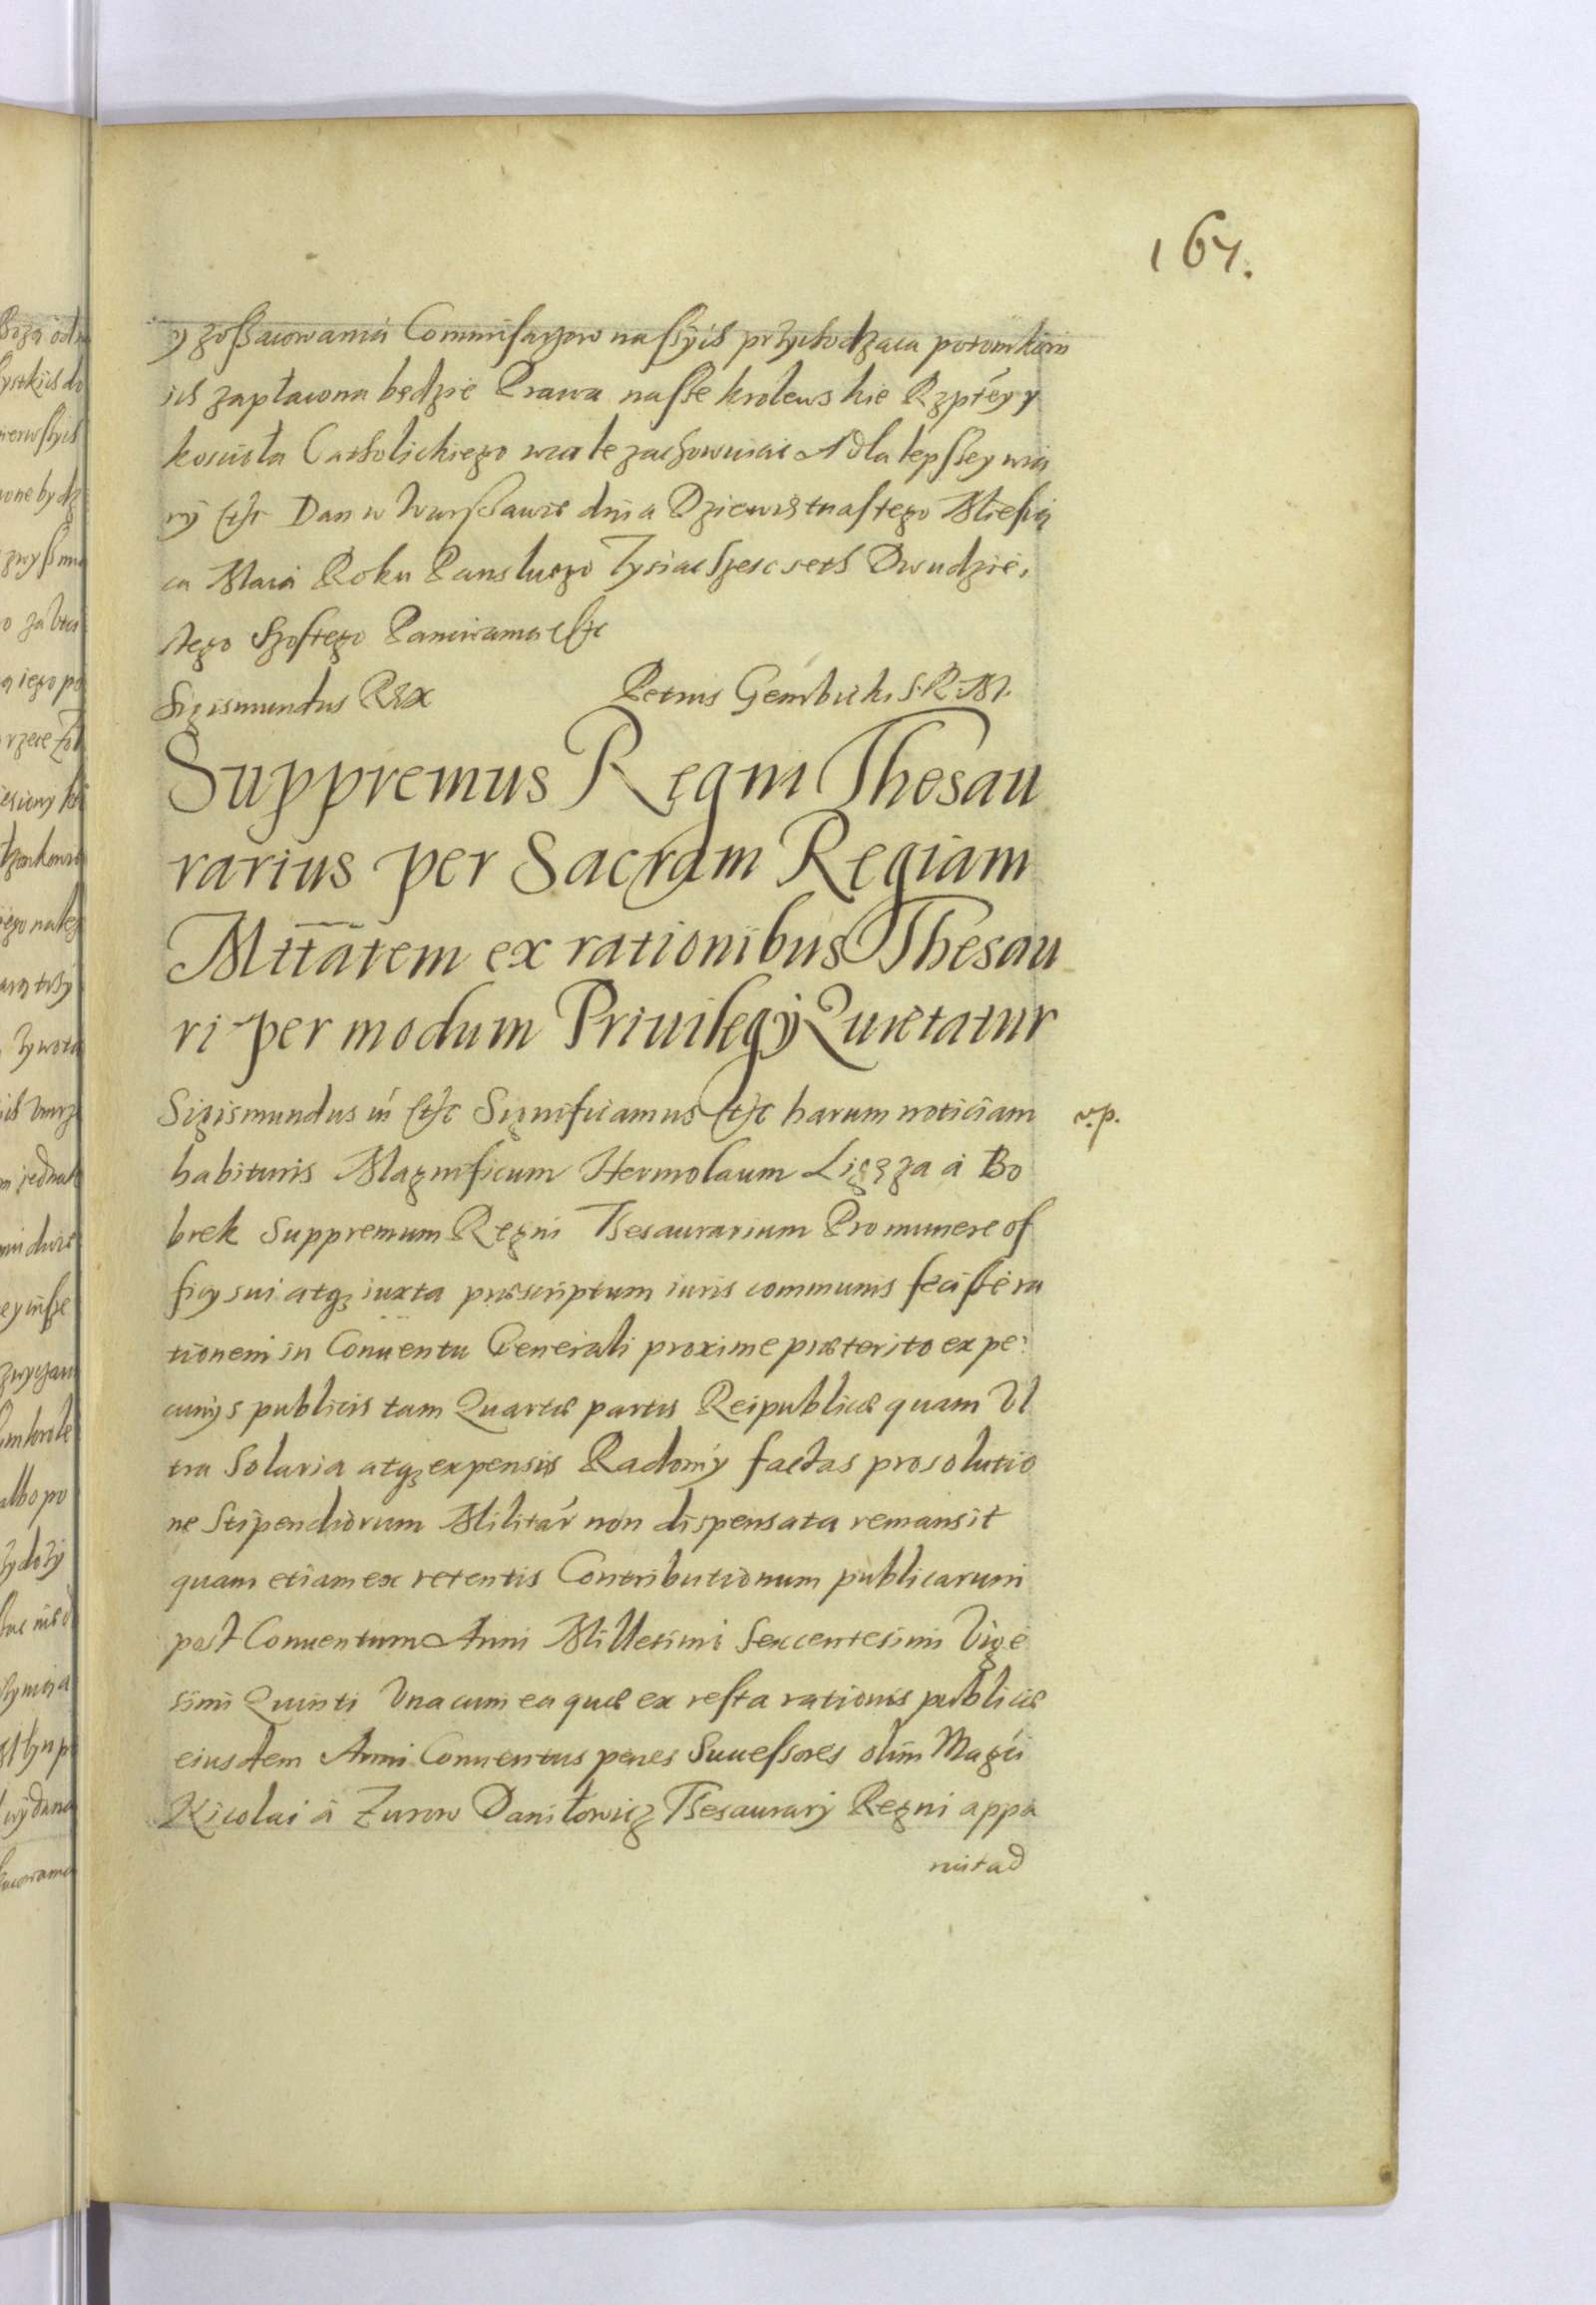 167.
y zoszacowania Commissarzow naszych przychodzaca potomkom
ich zapłacona będzie Prawa nasze krolewskie Rzpltey y
koscioła Catholickiego wcale zachowuiąc A dla lepszey wia
ry etc Dan w Warszawie dnia Dziewiętnastego Miesią
ca Maia Roku Panskiego Tysiac szescseth Dwudzie,
stego Szostego Panowania etc
Sigismundus Rex Petrus Gembicki S.R.M.
Suppremus Regni Thesau
rarius per Sacram Regiam
Mttatem ex rationibus Thesau
ri per modum Priuilegÿ Quietatur
Sigismundus iii etc Significamus etc harum noticiam
v.p.
habituris Magnificum Hermolaum Ligęza à Bo
brek Suppremum Regni Thesaurarium Pro munere of
ficy sui atq iuxta præscriptum iuris communis fecisse ra
tionem in Conuentu Generali proxime præterito ex pe
cunÿs publicis tam Quartæ partis Reipublicæ quam Vl
tra Solaria atq expensis Radomÿ factas pro solutio
ne Stipendiorum Militar non dispensata remansit
quam etiam ex retentis Contributionum publicarum
post Conuentum Anni Millesimi Sexcentesimi Vige
simi Quinti Vna cum ea quæ ex resta rationis publicæ
eiusdem Anni Conuentus penes Successores olim Magci
Nicolai à Zurow Daniłowicz Thesaurarÿ Regni appa
ruit ad